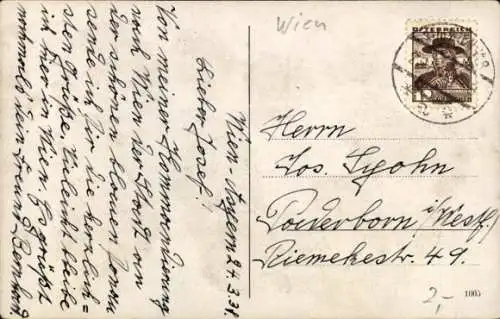 Wien
ÖSTERREICH
Wien-Aspern 24.3.38.
Lieber Josef!
Von meiner Kommandierung
nach Wien der Stadt an
der schönen blauen Donau
sende ich Dir die herzlich=
sten Grüße. Vieleicht bleibe
ich hier in Wien. Es grüßt
nochmals dein Freund Bernhard
Herrn
Jos.
Paderborn i/Westf.
Riemekestr. 49.
2,-
1005